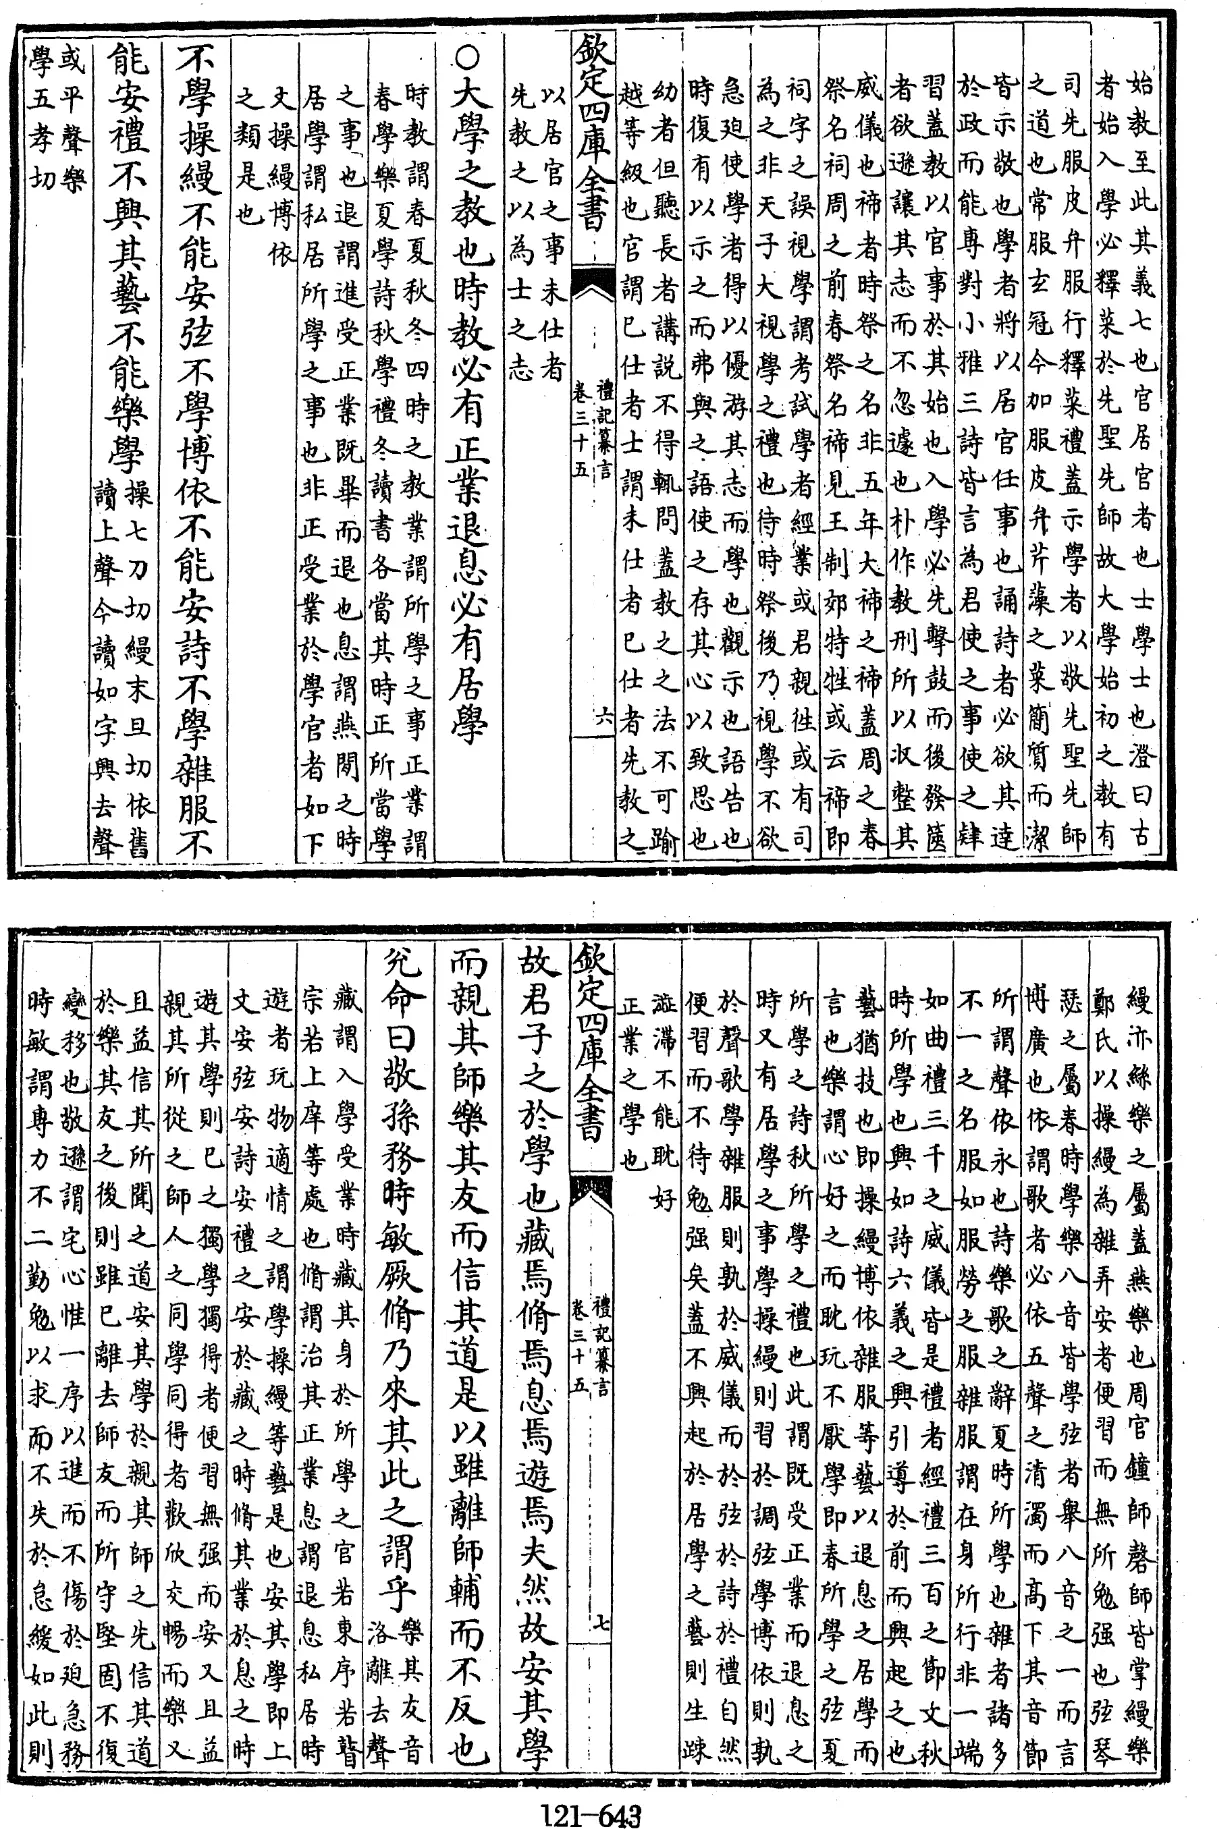 始教至此其義七也官居官者也士學士也澄曰古
者始入學必釋菜於先聖先師故大學始初之教有
司先服皮弁服行釋菜禮蓋示學者以敬先聖先師
之道也常服玄冠今加服皮弁芹藻之菜簡質而潔
皆示敬也學者將以居官任事也誦詩者必欲其達
於政而能專對小雅三詩皆言為君使之事使之肄
習蓋教以官事於其始也入學必先擊鼓而後發篋
者欲遜讓其志而不忽遽也朴作教刑所以收整其
威儀也禘者時祭之名非五年大禘之禘蓋周之春
祭名祠周之前春祭名禘見王制郊特牲或云禘即
祠字之誤視學謂考試學者經業或君親往或有司
為之非天子大視學之禮也待時祭後乃視學不欲
急廹使學者得以優游其志而學也觀示也語告也
時復有以示之而弗與之語使之存其心以致思也
幼者但聽長者講說不得輒問蓋教之之法不可踰
越等級也官謂已仕者士謂未仕者已仕者先教之
以居官之事未仕者
先教之以為士之志
欽定四庫全書
禮記纂言
卷三十五
六
○大學之教也時教必有正業退息必有居學
時教謂春夏秋冬四時之教業謂所學之事正業謂
春學樂夏學詩秋學禮冬讀書各當其時正所當學
之事也退謂進受正業既畢而退也息謂燕閒之時
居學謂私居所學之事也非正受業於學官者如下
文操縵博依
之類是也
不學操縵不能安弦不學博依不能安詩不學雜服不
能安禮不興其藝不能樂學
操七刀切縵末旦切依舊
讀上聲今讀如字興去聲
或平聲樂
學五孝切
縵亦絲樂之屬蓋燕樂也周官鐘師磬師皆掌縵樂
鄭氏以操縵為雜弄安者便習而無所勉强也弦琴
瑟之屬春時學樂八音皆學弦者舉八音之一而言
博廣也依謂歌者必依五聲之清濁而高下其音節
所謂聲依永也詩樂歌之辭夏時所學也雜者諸多
不一之名服如服勞之服雜服謂在身所行非一端
如曲禮三千之威儀皆是禮者經禮三百之節文秋
時所學也興如詩六義之興引導於前而興起之也
藝猶技也即操縵博依雜服等藝以退息之居學而
言也樂謂心好之而耽玩不厭學即春所學之弦夏
所學之詩秋所學之禮也此謂既受正業而退息之
時又有居學之事學操縵則習於調弦學博依則孰
於聲歌學雜服則孰於威儀而於弦於詩於禮自然
便習而不待勉强矣蓋不興起於居學之藝則生踈
澁滯不能耽好
正業之學也
欽定四庫全書
禮記纂言
卷三十五
七
故君子之於學也藏焉脩焉息焉遊焉夫然故安其學
而親其師樂其友而信其道是以雖離師輔而不反也
兊命曰敬孫務時敏厥脩乃來其此之謂乎
樂其友音
洛離去聲
藏謂入學受業時藏其身於所學之官若東序若瞽
宗若上庠等處也脩謂治其正業息謂退息私居時
遊者玩物適情之謂學操縵等藝是也安其學即上
文安弦安詩安禮之安於藏之時脩其業於息之時
遊其學則已之獨學獨得者便習無强而安又且益
親其所從之師人之同學同得者歡欣交暢而樂又
且益信其所聞之道安其學於親其師之先信其道
於樂其友之後則雖已離去師友而所守堅固不復
變移也敬遜謂宅心惟一序以進而不傷於廹急務
時敏謂專力不二勤勉以求而不失於怠緩如此則
121-643